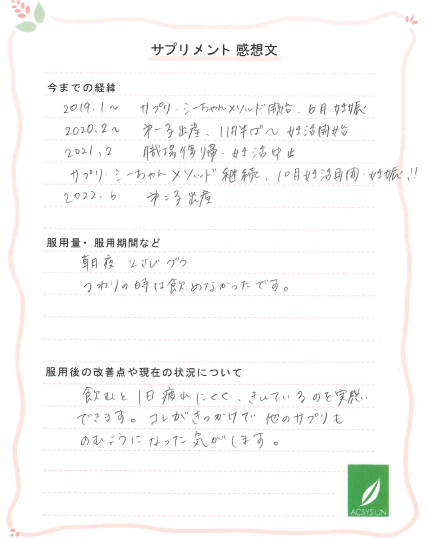 サプリメント 感想文
今までの経緯
2019.1〜 サプリ・シーちゃんメソッド開始、6月 妊娠
2020.2〜 第一子出産、11月半ば〜 妊活開始
2021.2 職場復帰・妊活中止
サプリ・シーちゃんメソッド継続、10月妊活再開・妊娠!!
2022.6 第二子出産
服用量・服用期間など
朝夜 2さじづつ
つわりの時は飲めなかったです。
服用後の改善点や現在の状況について
飲むと1日疲れにくく、きいているのを実感
できます。コレがきっかけで他のサプリも
のむようになった気がします。
ACSYSUN